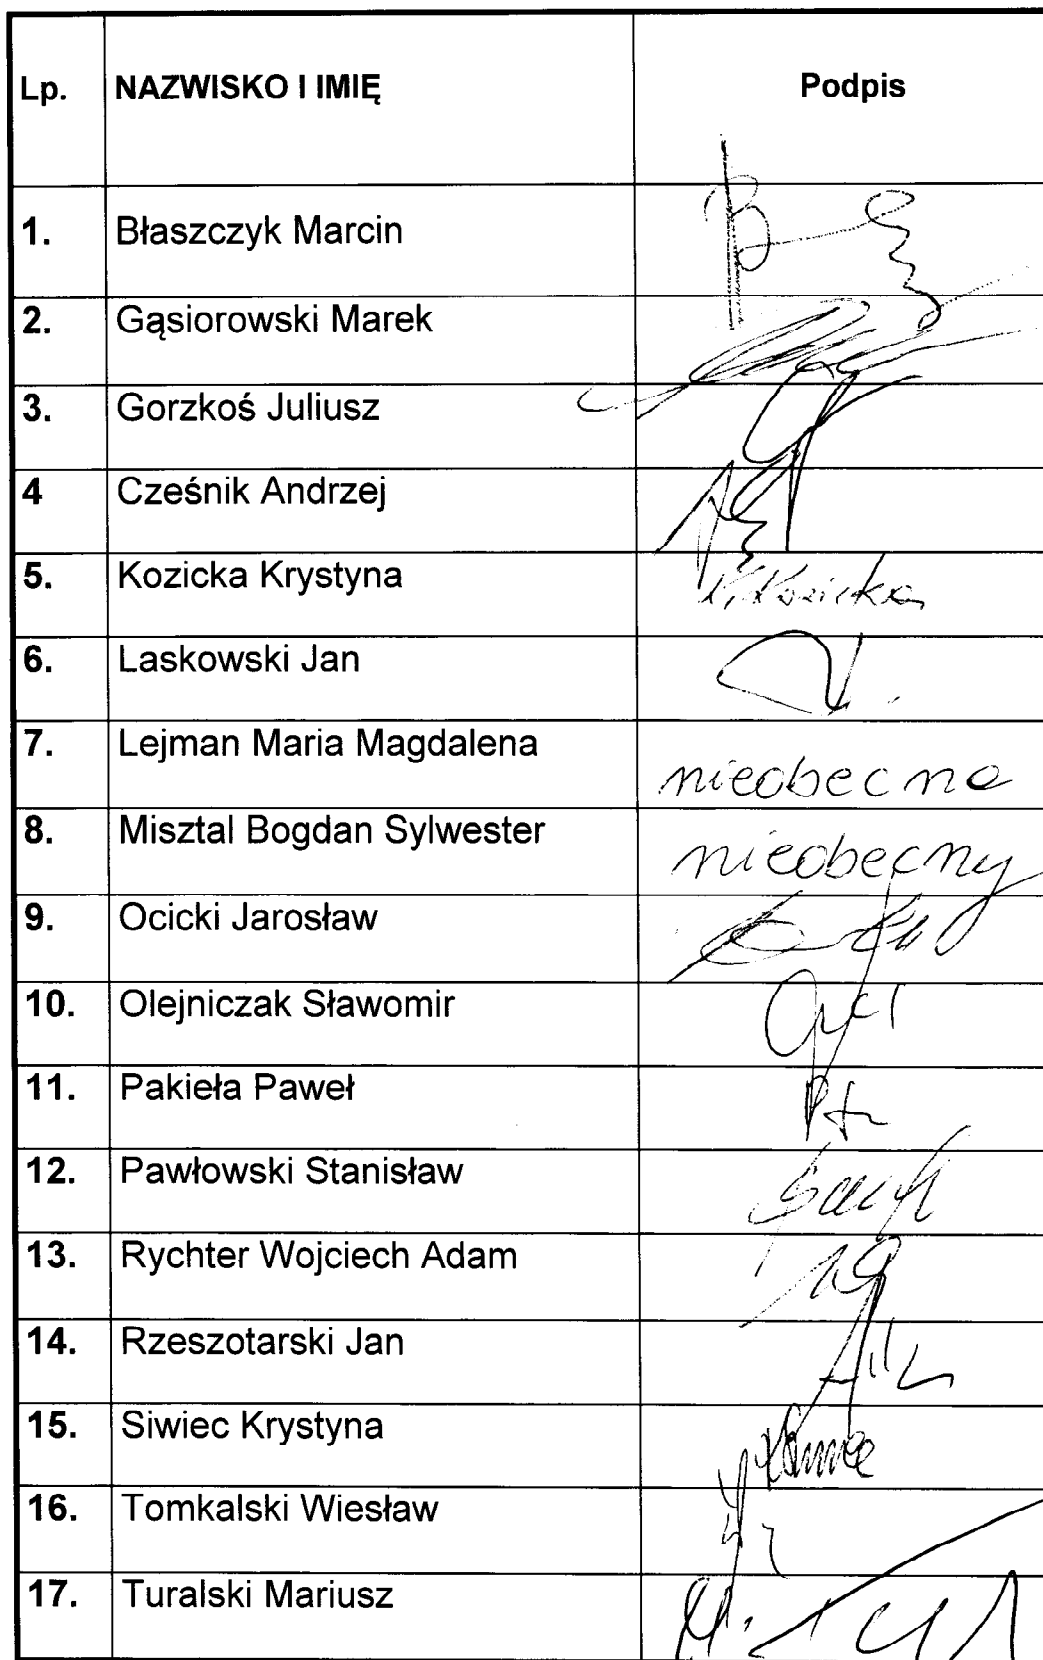 Lp. NAZWISKO I IMIĘ Podpis
1. Błaszczyk Marcin
2. Gąsiorowski Marek
3. Gorzkoś Juliusz
4 Cześnik Andrzej
5. Kozicka Krystyna K. Kozicka
6. Laskowski Jan
7. Lejman Maria Magdalena nieobecna
8. Misztal Bogdan Sylwester nieobecny
9. Ocicki Jarosław
10. Olejniczak Sławomir
11. Pakieła Paweł
12. Pawłowski Stanisław
13. Rychter Wojciech Adam
14. Rzeszotarski Jan
15. Siwiec Krystyna
16. Tomkalski Wiesław
17. Turalski Mariusz